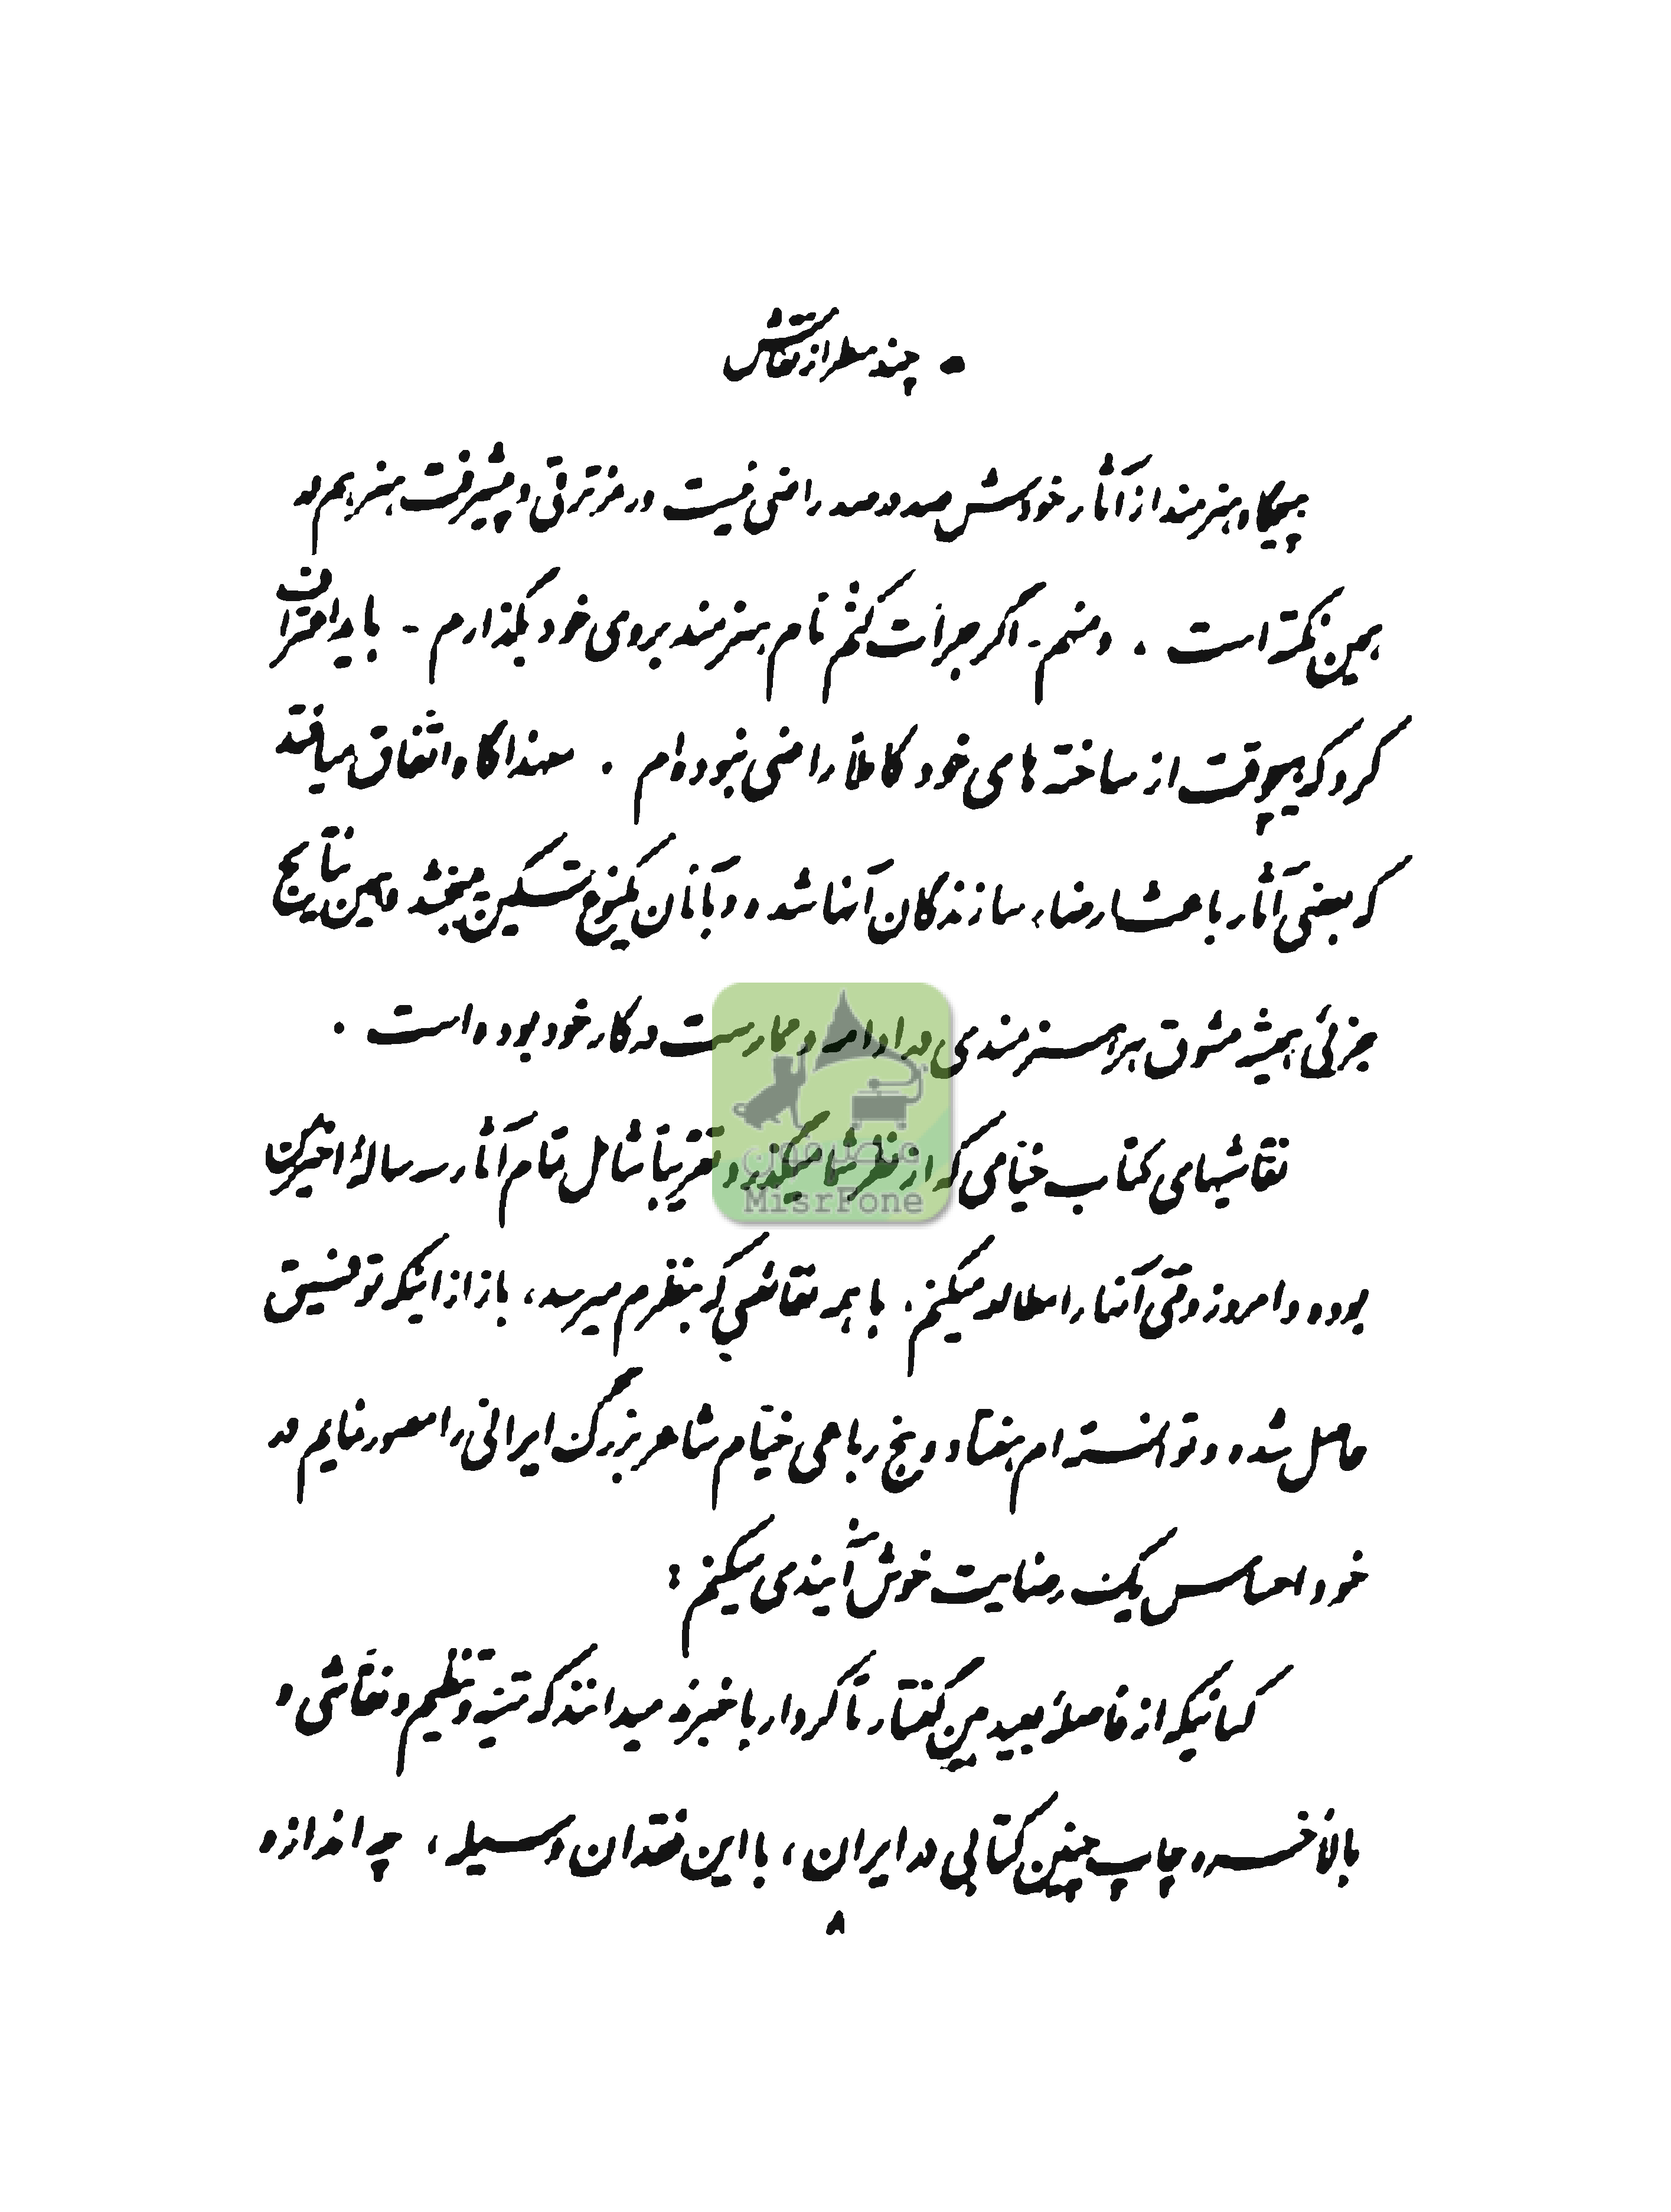 • چند سطر از نقاش
هیچگاه هنرمند از آثار خودش صد در صد راضی نیست و رمز ترقی و پیشرفت هنر هم در
همین نکته است . و منهم - اگر جرأت کنم نام هنرمند بروی خود بگذارم - باید اعتراف
کرد که هیچوقت از ساخته های خود کاملاً راضی نبوده‌ام . معهذا گاه اتفاق میافتد
که بعضی آثار باعث ارضاء سازندگان آنها شده و بآنان یکنوع تسکین میبخشد و همین نتایج
جزئی همیشه مشوق هر هنرمندی در ادامه و ممارست در کار خود بوده است .
نقاشیهای کتاب خیامی که از نظر شما میگذرد تقریباً شامل تمام آثار سه ساله اخیر من
بوده و امروز وقتی آنها را مطالعه میکنم. با همه نقائصی که بنظرم میرسد، باز از اینکه توفیق
حاصل شده و توانسته ام هفتاد و پنج رباعی خیام شاعر بزرگ ایرانی را مصور نمایم در
خود احساس یک رضایت خوش آیندی میکنم :
کسانیکه از فاصله بعید بین گفتار تا کردار با خبرند میدانند که تهیه و تنظیم و نقاشی و
بالاخره چاپ چنین کتابی در ایران ، با این فقدان وسیله ، چه اندازه
۸
منصرفون
MisrFone